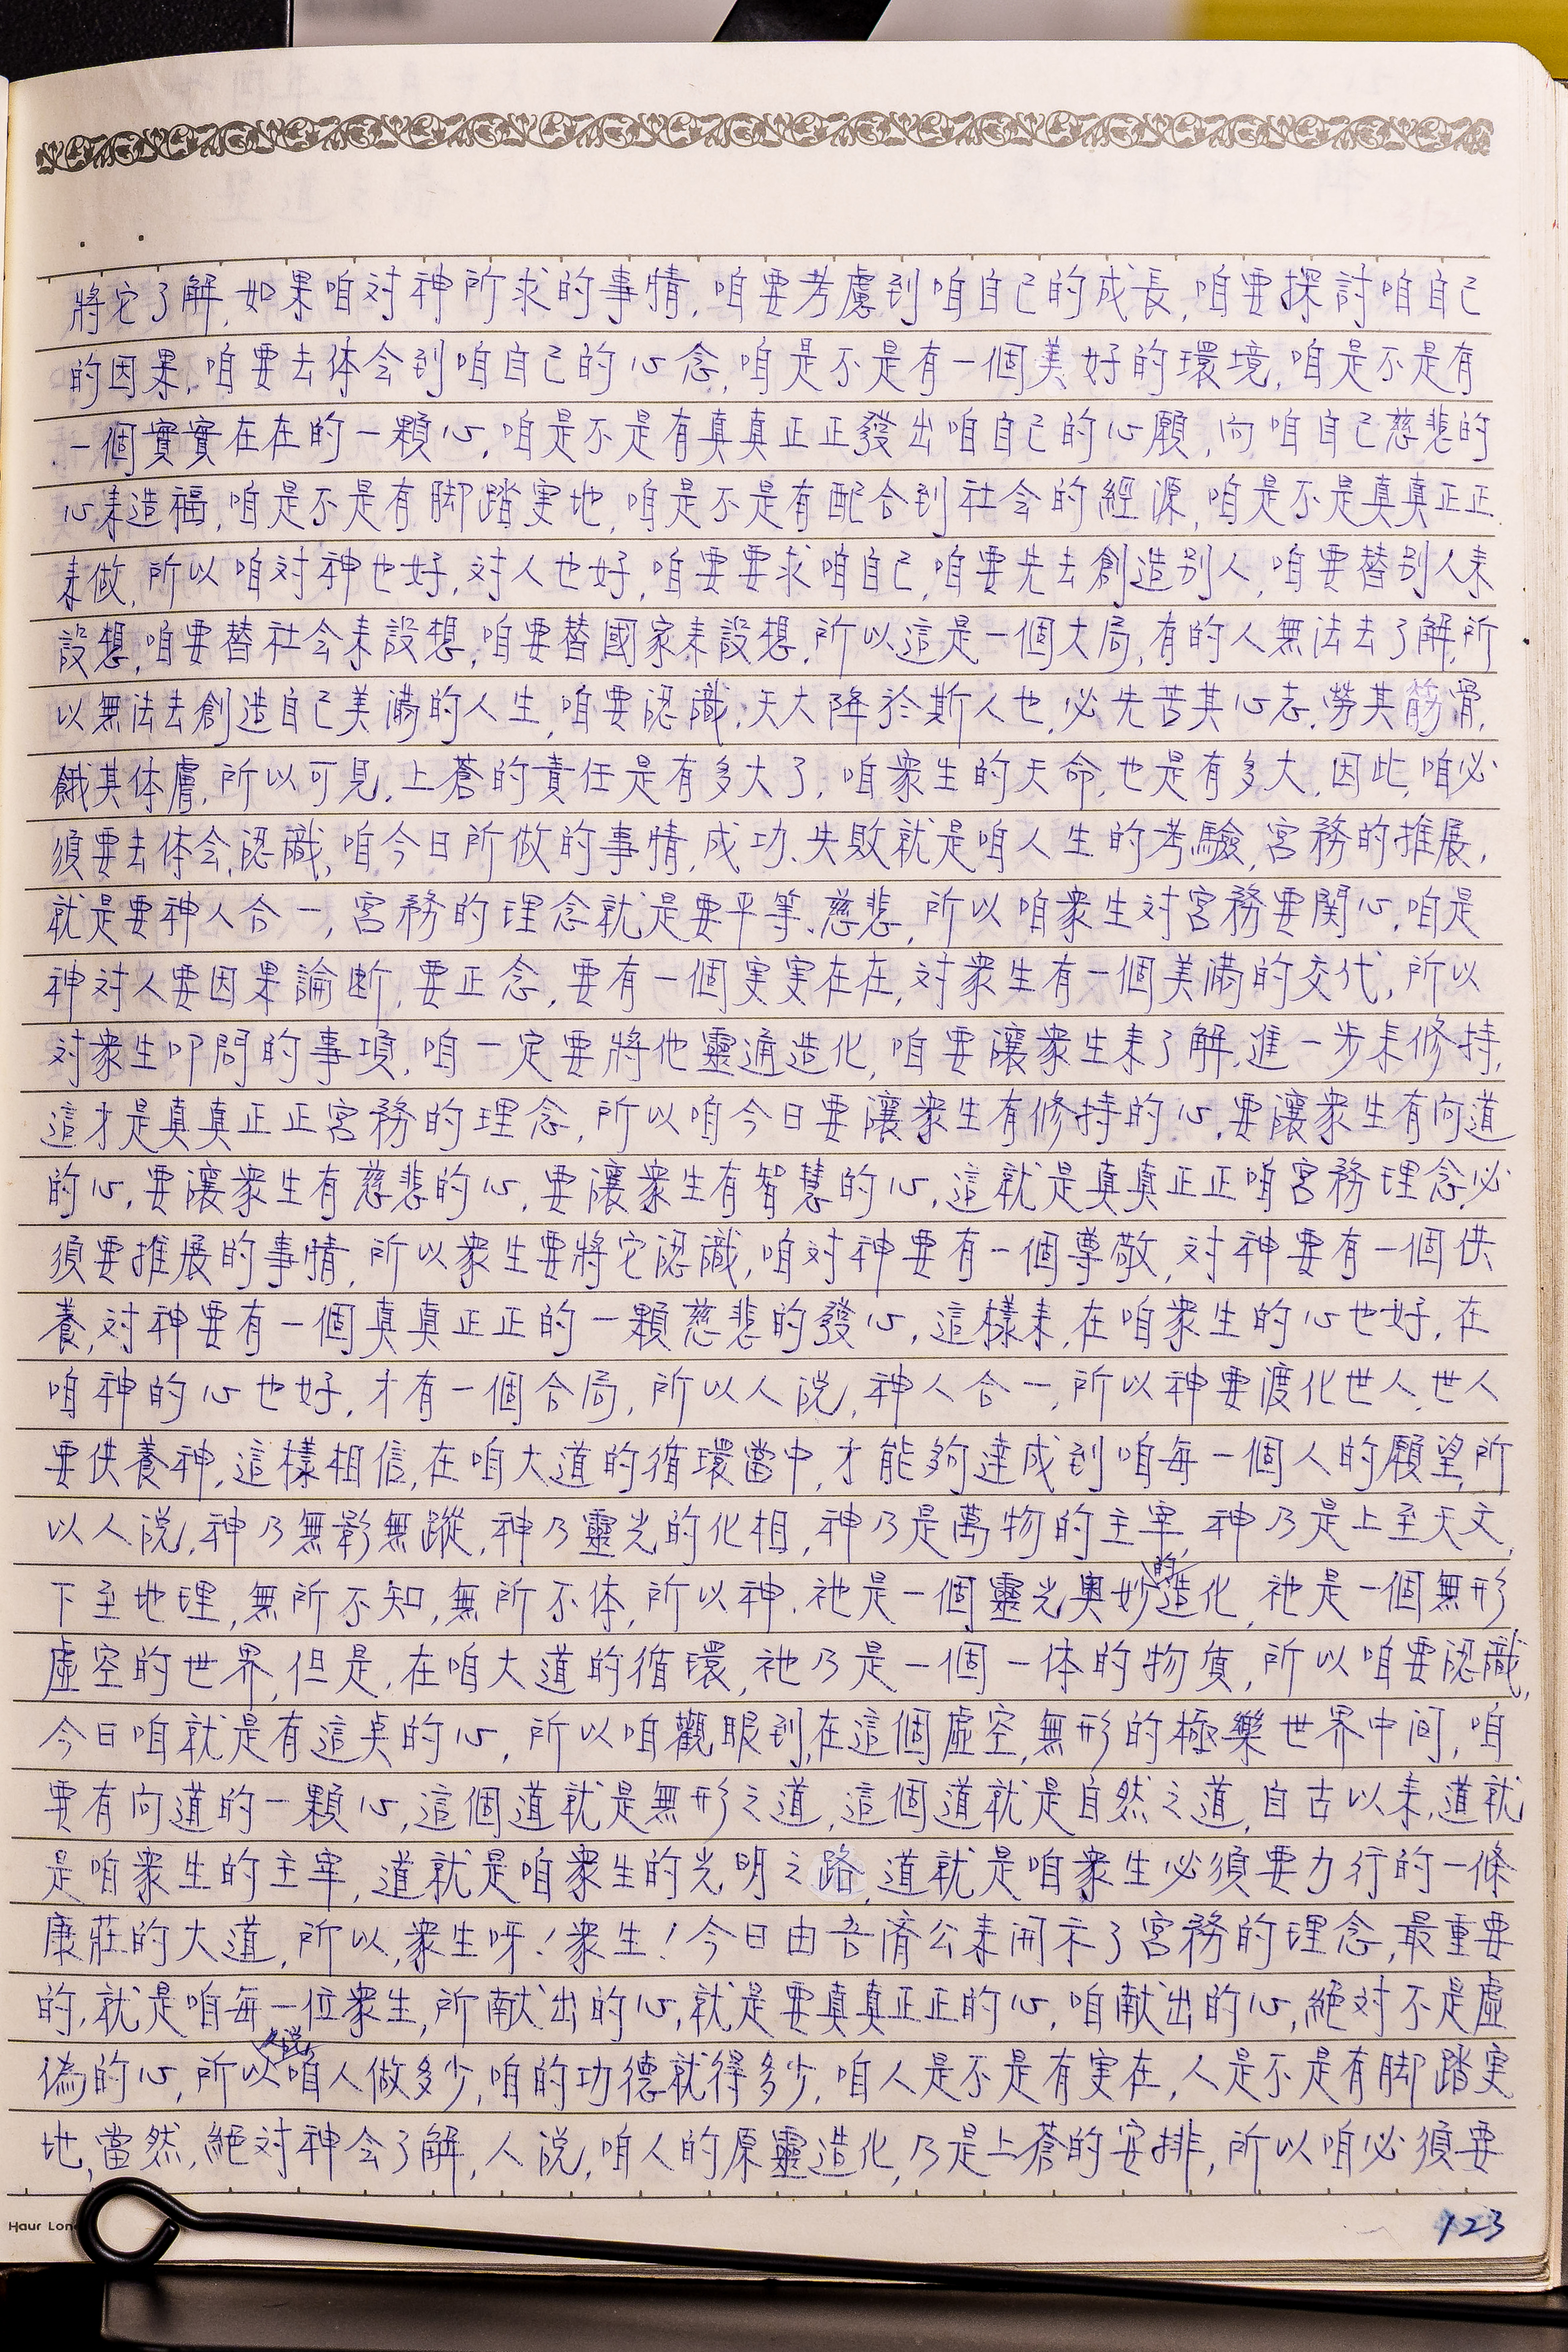 將它了解,如果咱対神所求的事情,咱要考慮到咱自己的成長,咱要探討咱自己
的因果,咱要去体会到咱自己的心念,咱是不是有一個美好的環境,咱是不是有
一個實實在在的一顆心,咱是不是有真真正正發出咱自己的心願,向咱自己慈悲的
心来造福,咱是不是有脚踏実地,咱是不是有配合到社会的經源,咱是不是真真正正
来做,所以咱対神也好,対人也好,咱要要求咱自己,咱要先去創造别人,咱要替别人来
設想,咱要替社会来設想,咱要替國家来設想,所以這是一個大局,有的人無法去了解,所
以無法去創造自己美満的人生,咱要認識,天大降於斯人也,必先苦其心志,勞其筋骨,
餓其体膚,所以可見,上蒼的責任是有多大了,咱衆生的天命,也是有多大,因此,咱必
須要去体会,認識,咱今日所做的事情,成功、失敗就是咱人生的考驗,宮務的推展,
就是要神人合一,宮務的理念就是要平等、慈悲,所以咱衆生対宮務要関心,咱是
神対人要因果論断,要正念,要有一個実実在在,対衆生有一個美満的交代,所以
対衆生叩問的事項,咱一定要將他靈通造化,咱要讓衆生来了解,進一步来修持,
這才是真真正正宮務的理念,所以咱今日要讓衆生有修持的心,要讓衆生有向道
的心,要讓衆生有慈悲的心,要讓衆生有智慧的心,這就是真真正正咱宮務理念必
須要推展的事情,所以衆生要將它認識,咱対神要有一個尊敬,対神要有一個供
養,対神要有一個真真正正的一顆慈悲的發心,這樣来,在咱衆生的心也好,在
咱神的心也好,才有一個合局,所以人説,神人合一,所以神要渡化世人,世人
要供養神,這樣相信,在咱大道的循環當中,才能夠達成到咱每一個人的願望,所
以人説,神乃無影無蹤,神乃靈光的化相,神乃是萬物的主宰,神乃是上至天文,
下至地理,無所不知,無所不体,所以神,祂是一個靈光奥妙的造化,祂是一個無形
虛空的世界,但是,在咱大道的循環,祂乃是一個一体的物質,所以咱要認識,
今日咱就是有這奌的心,所以咱觀眼到,在這個虛空,無形的極樂世界中间,咱
要有向道的一顆心,這個道就是無形之道,這個道就是自然之道,自古以来,道就
是咱衆生的主宰,道就是咱衆生的光明之路,道就是咱衆生必須要力行的一條
康莊的大道,所以,衆生呀!衆生!今日由吾濟公来開示了宮務的理念,最重要
的,就是咱每一位衆生,所献出的心,就是要真真正正的心,咱献出的心,絕対不是虛
偽的心,所以人説咱人做多少,咱的功德就得多少,咱人是不是有実在,人是不是有脚踏実
地,當然,絕対神会了解,人説,咱人的原靈造化,乃是上蒼的安排,所以咱必須要
Haur Lon
123